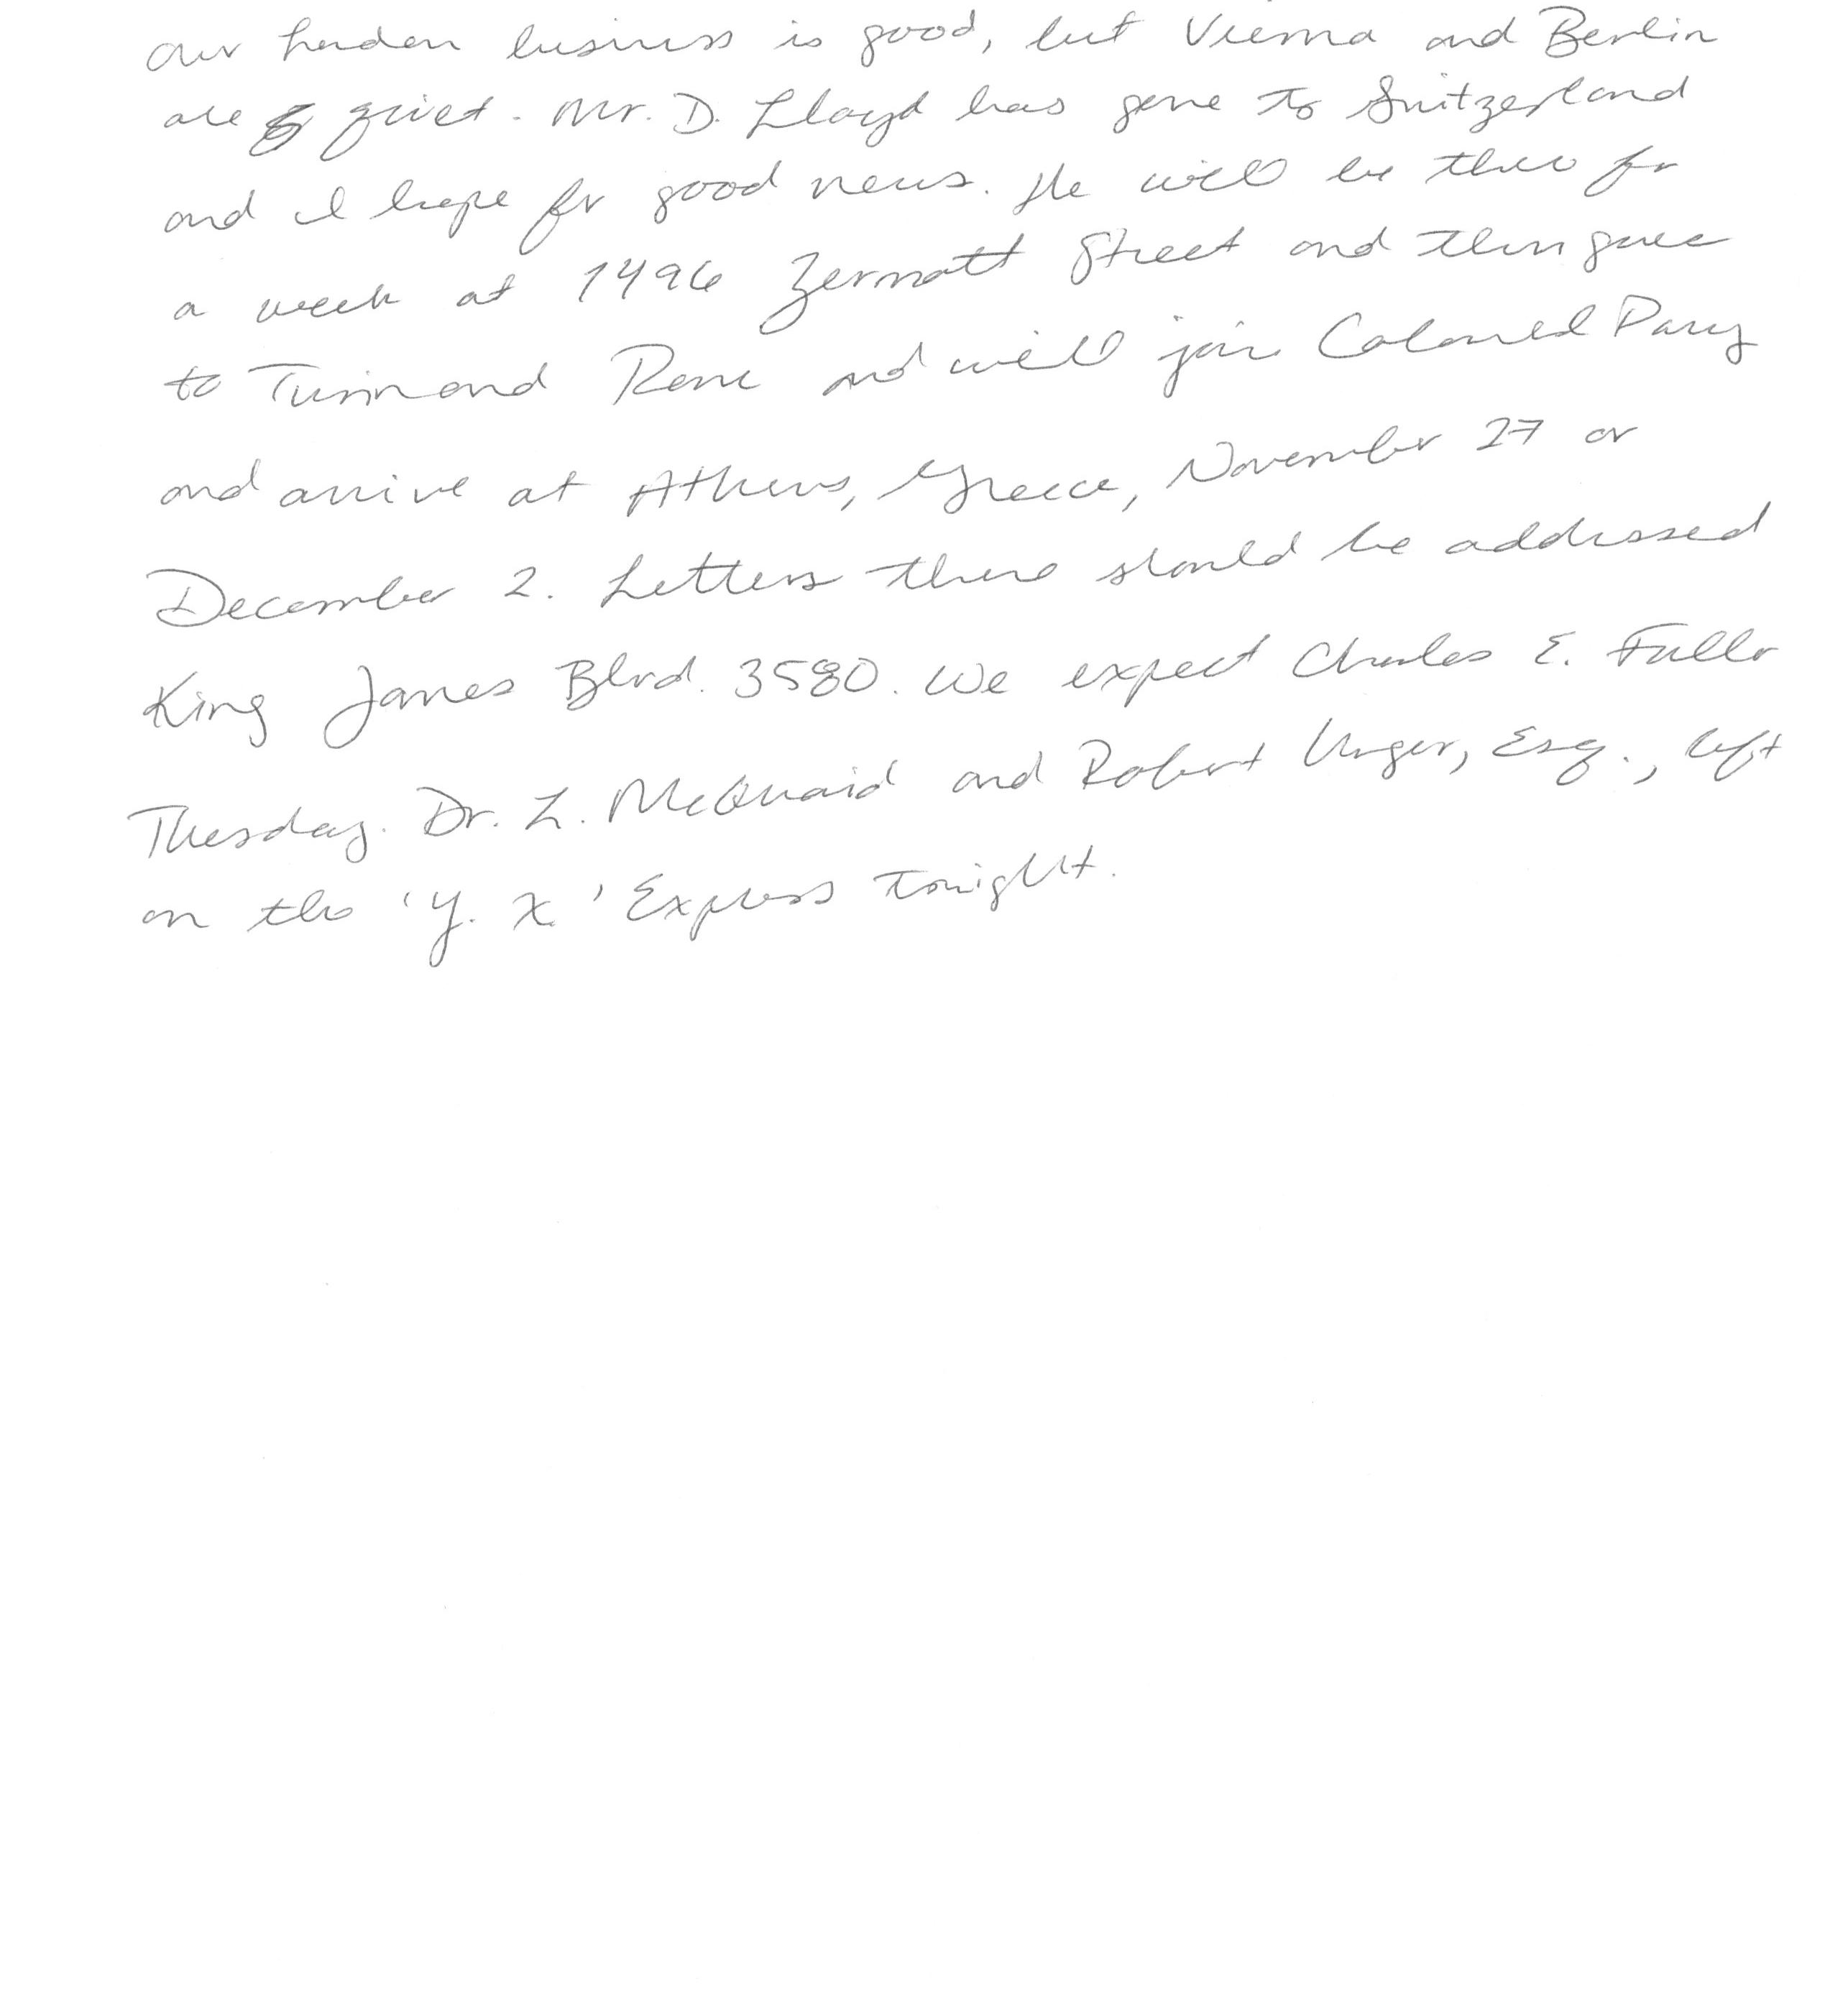 Our London business is good, but Vienna and Berlin
are quiet. Mr. D. Lloyd has gone to Switzerland
and I hope for good news. He will be there for
a week at 1496 Zermott Street and then goes
to Turin and Rome and will join Colonel Parry
and arrive at Athens, Greece, November 27 or
December 2. Letters there should be addressed
King James Blvd. 3580. We expect Charles E. Fuller
Tuesday. Dr. L. McQuaid and Robert Unger, Esq., left
on the 'Y. X.' Express tonight.